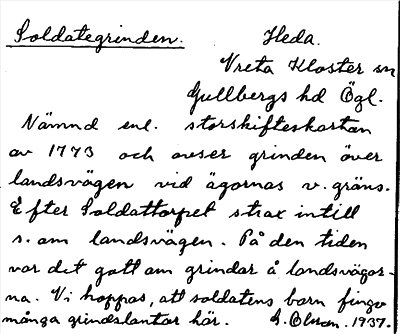 Soldategrinden. Heda.
Vreta Kloster sn
Gullbergs hd Ögl.
Nämnd enl. storskifteskartan
av 1773 och avser grinden över
landsvägen vid ägornas v. gräns.
Efter Soldattorpet strax intill
s. om landsvägen. På den tiden
var det gott om grindar å landsvägor-
na. Vi hoppas, att soldatens barn fingo
många grindslantar här. G. Olson. 1937.